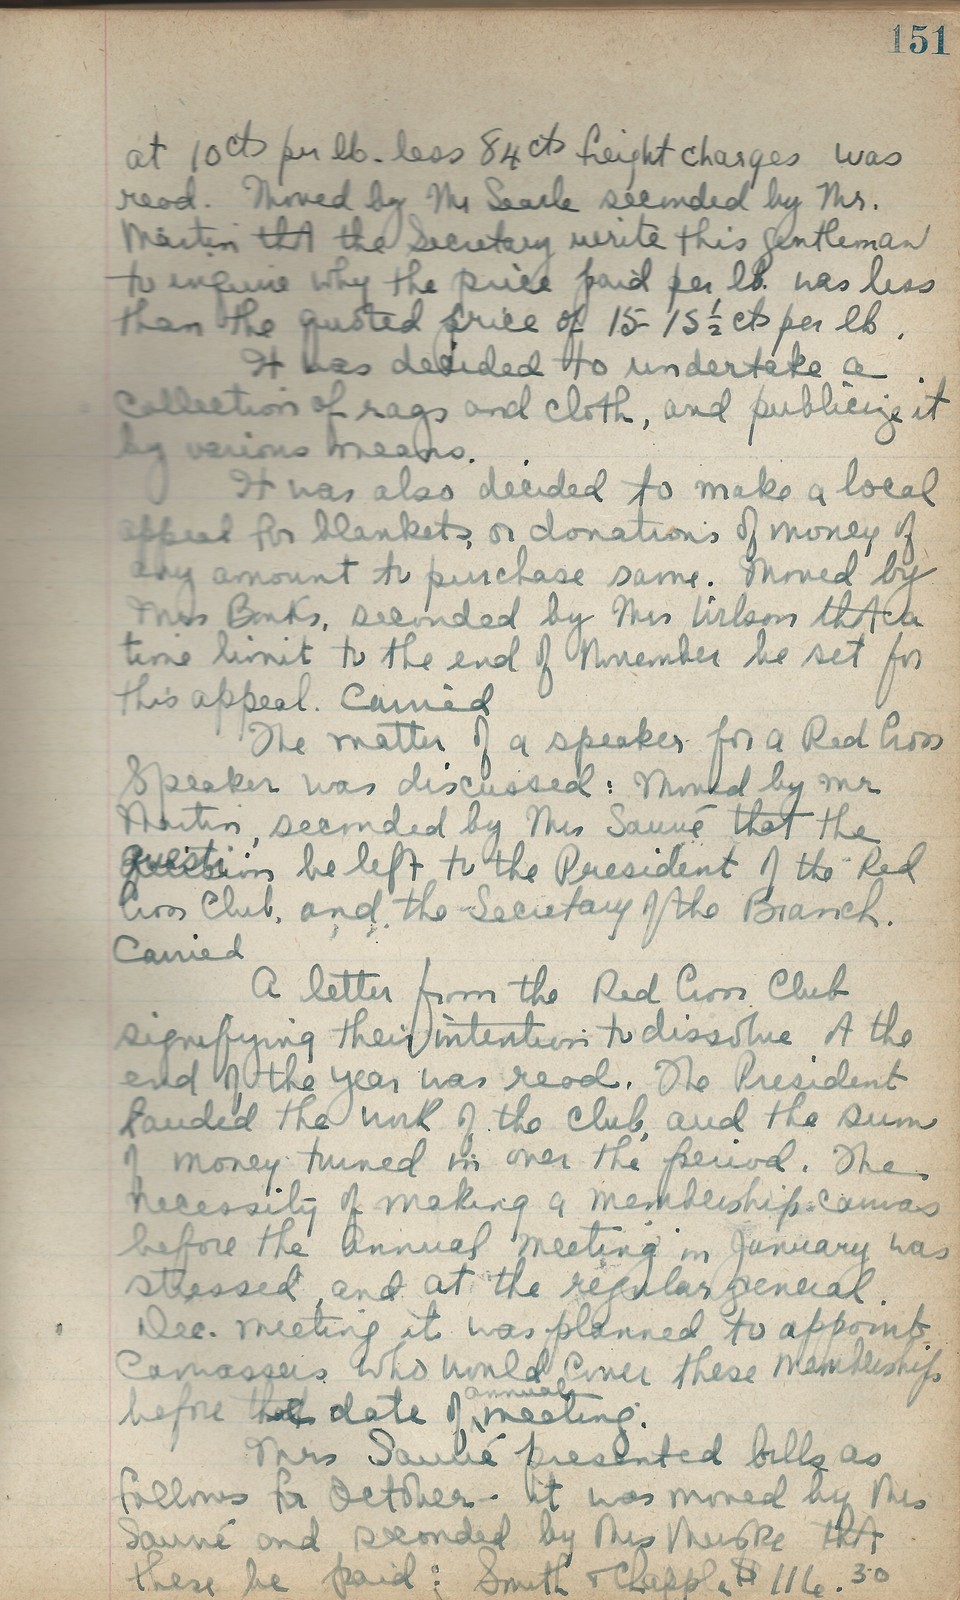 151
at 10cts per lb. less 84cts freight charges was
read. Moved by Mr Searle seconded by Mr.
Martin that the Secretary write this gentleman
to inquire why the price paid per lb. was less
than the quoted price of 15-15½ cts per lb.
It was decided to undertake a
collection of rags and cloth, and publicize it
by various means.
It was also decided to make a local
appeal for blankets, or donations of money of
any amount to purchase same. Moved by
Mrs Banks, seconded by Mrs Wilson that a
time limit to the end of November be set for
this appeal. Carried
The matter of a speaker for a Red Cross
Speaker was discussed: Moved by Mr
Martin, seconded by Mrs Sauvé that the
be left to the President of the Red
Cross Club, and the Secretary of the Branch.
Carried
A letter from the Red Cross Club
signifying their intention to dissolve at the
end of the year was read. The President
lauded the work of the Club, and the sum
of money turned in over the period. The
necessity of making a membership canvas
before the annual meeting in January was
stressed, and at the regular general
Dec. meeting it was planned to appoint
Canvassers who would cover these memberships
before date of annual meeting.
Mrs Sauvé presented bills as
follows for October - it was moved by Mrs
Sauvé and seconded by Mrs that
these be paid: Smith & Chapple $116.30